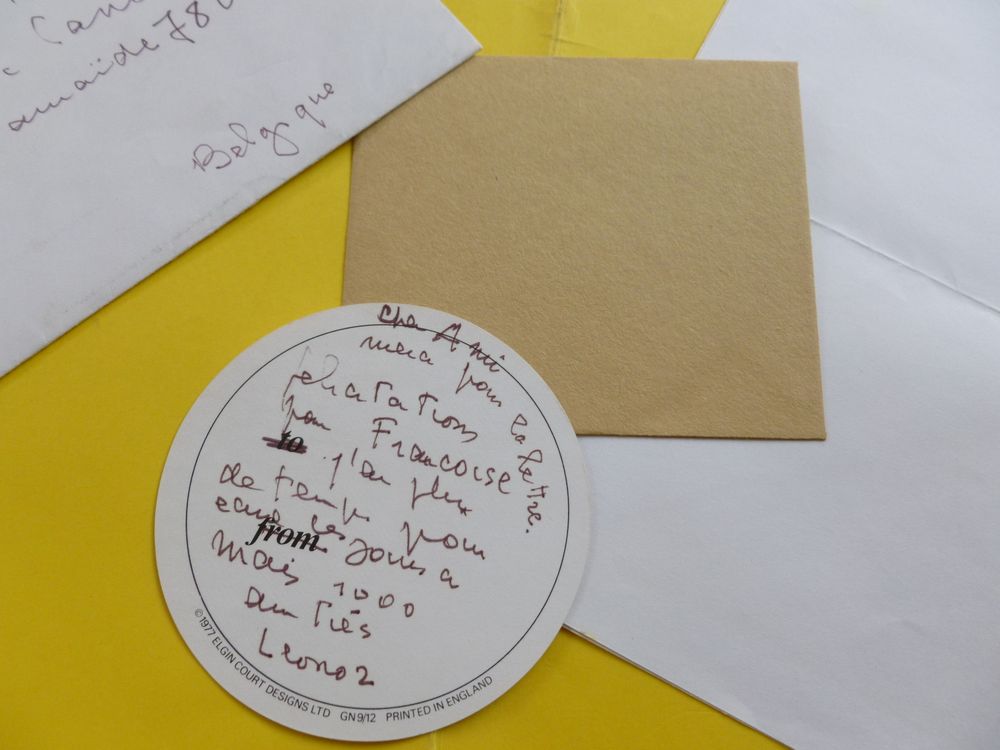 Belgique
cher Ami
merci pour ta lettre.
félicitations
pour Françoise
to
j'ai plus
de temps pour
from
jours
Mais 1000
amitiés
Leonor
©1977 ELGIN COURT DESIGNS LTD GN9/12 PRINTED IN ENGLAND